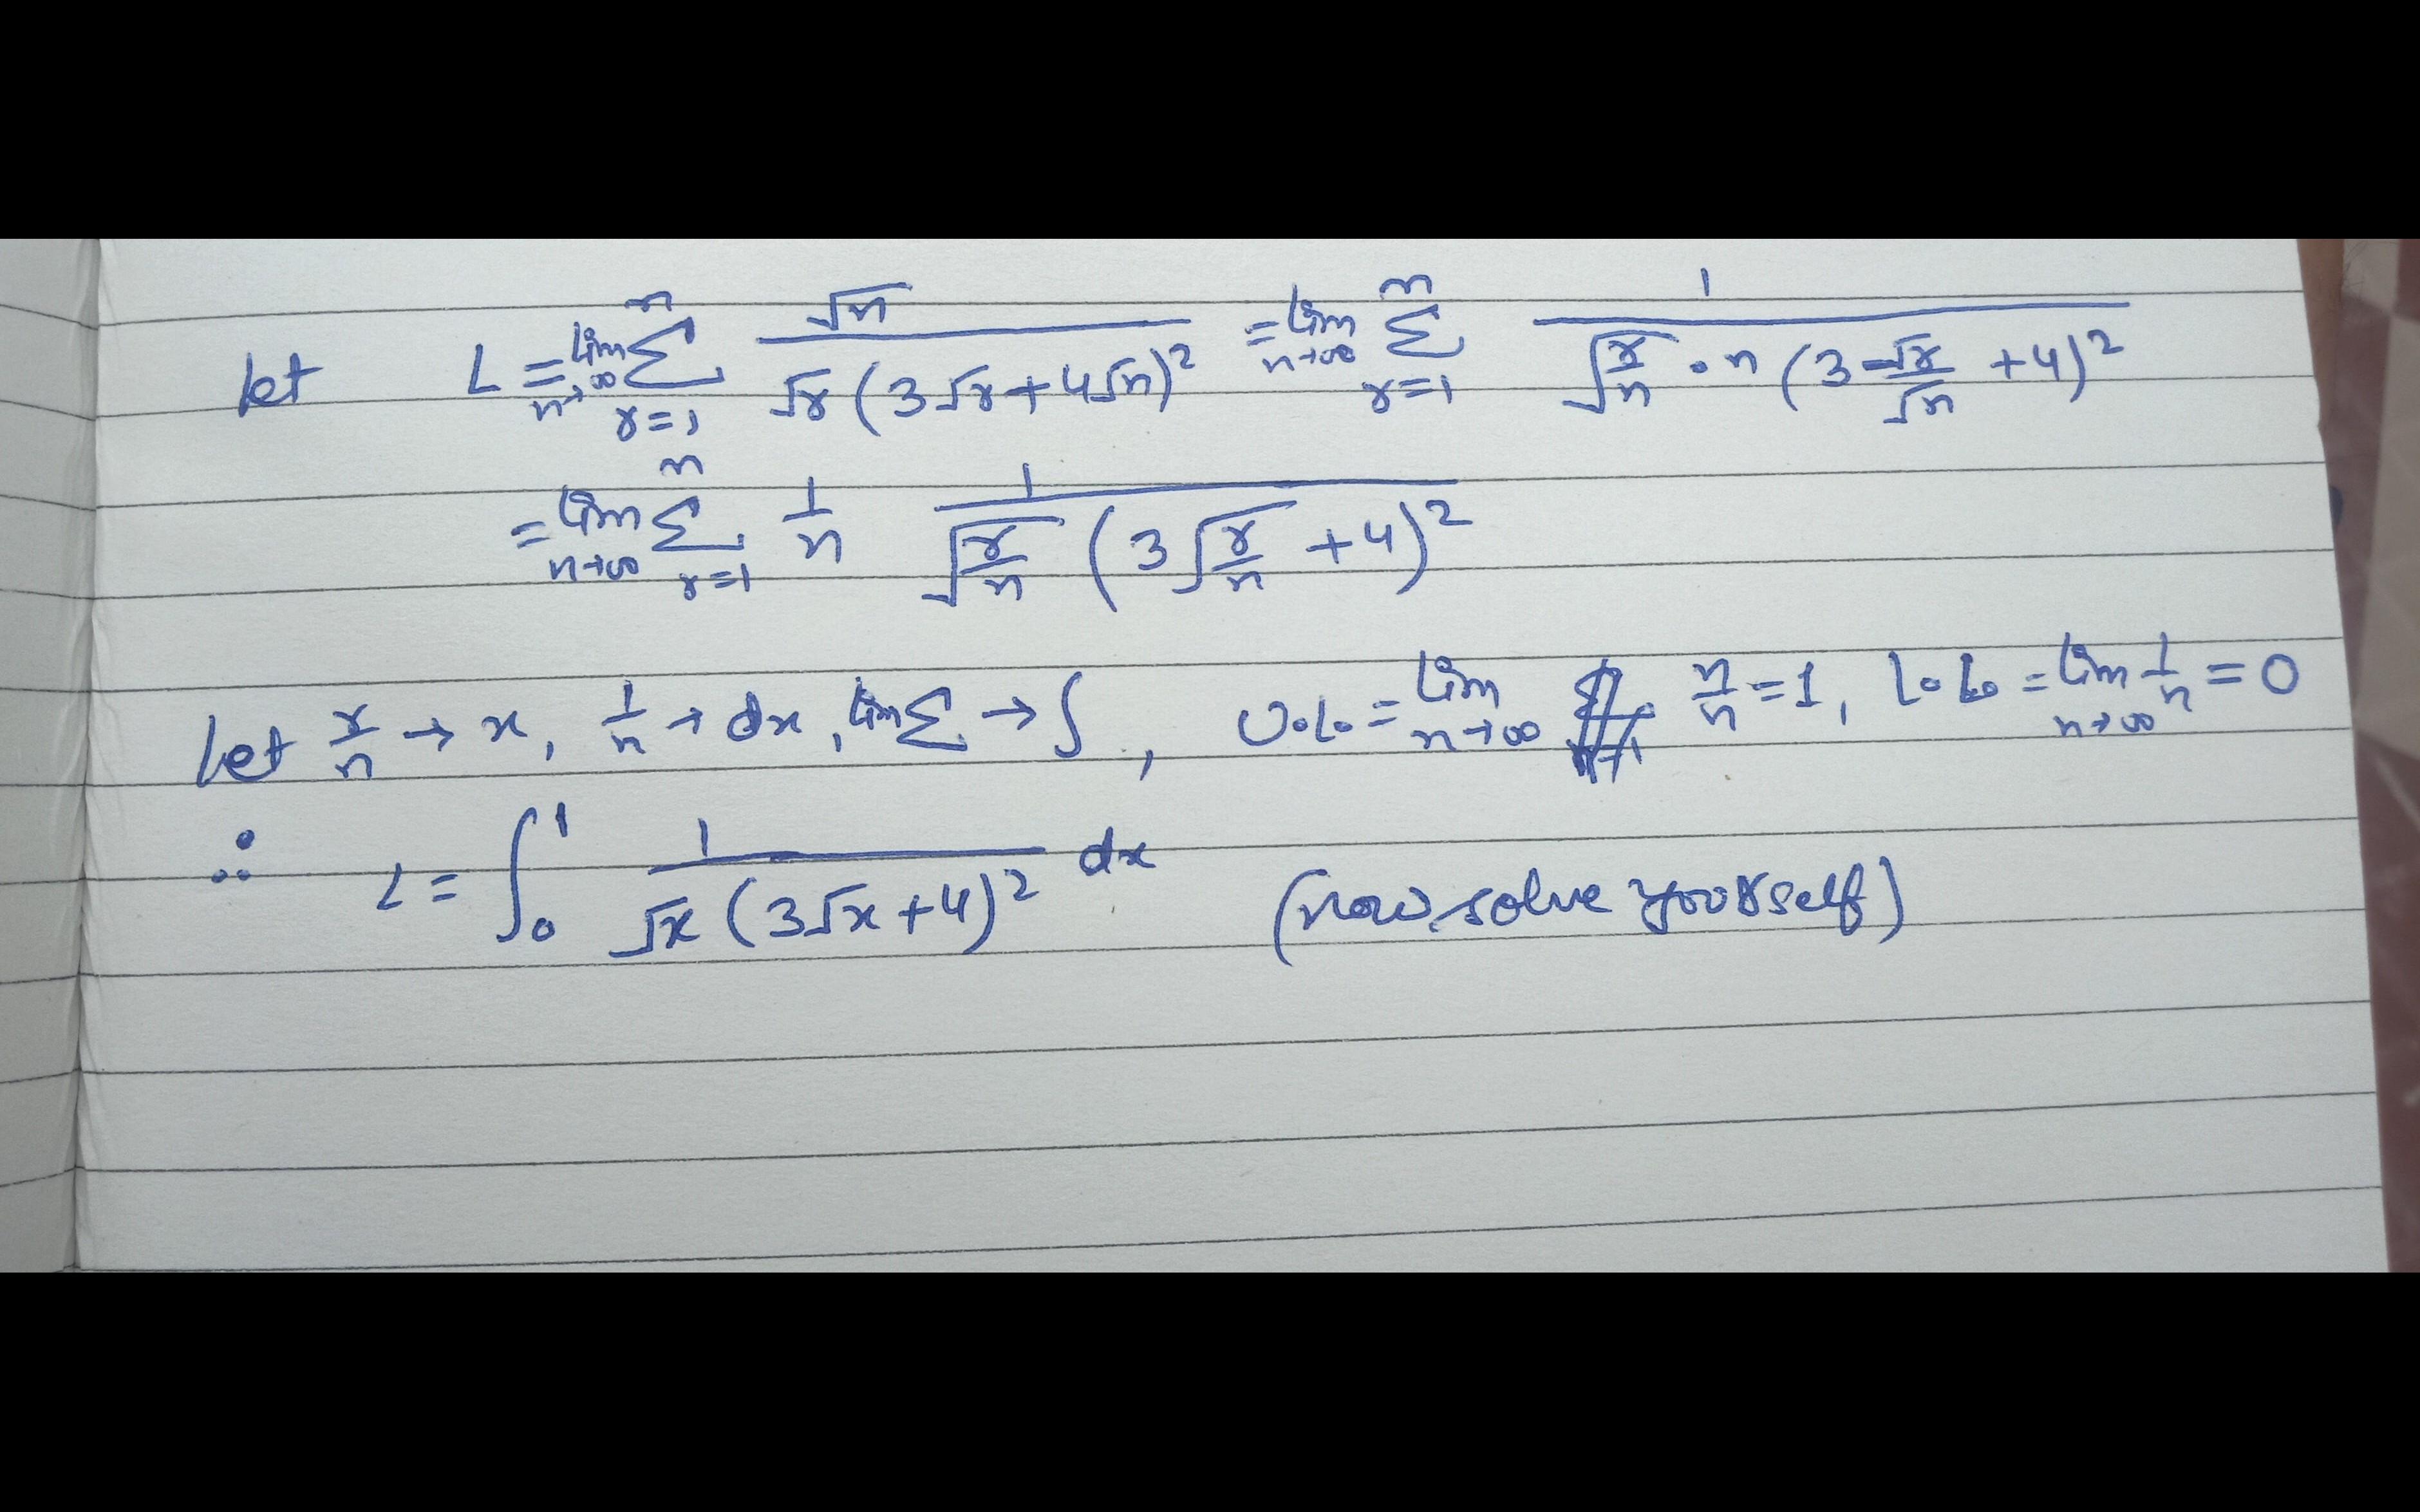 let L = lim n→∞ Σ r=1 n √n / √r (3√r + 4√n)² = lim n→∞ Σ r=1 n 1 / √(r/n) · n (3 √r/√n + 4)²
= lim n→∞ Σ r=1 n 1/n 1 / √(r/n) (3√(r/n) + 4)²
let r/n → x, 1/n → dx, lim Σ → ∫, U.L. = lim n→∞ n/n = 1, L.L. = lim n→∞ 1/n = 0
∴ L = ∫₀¹ 1 / √x (3√x + 4)² dx (now solve yourself)